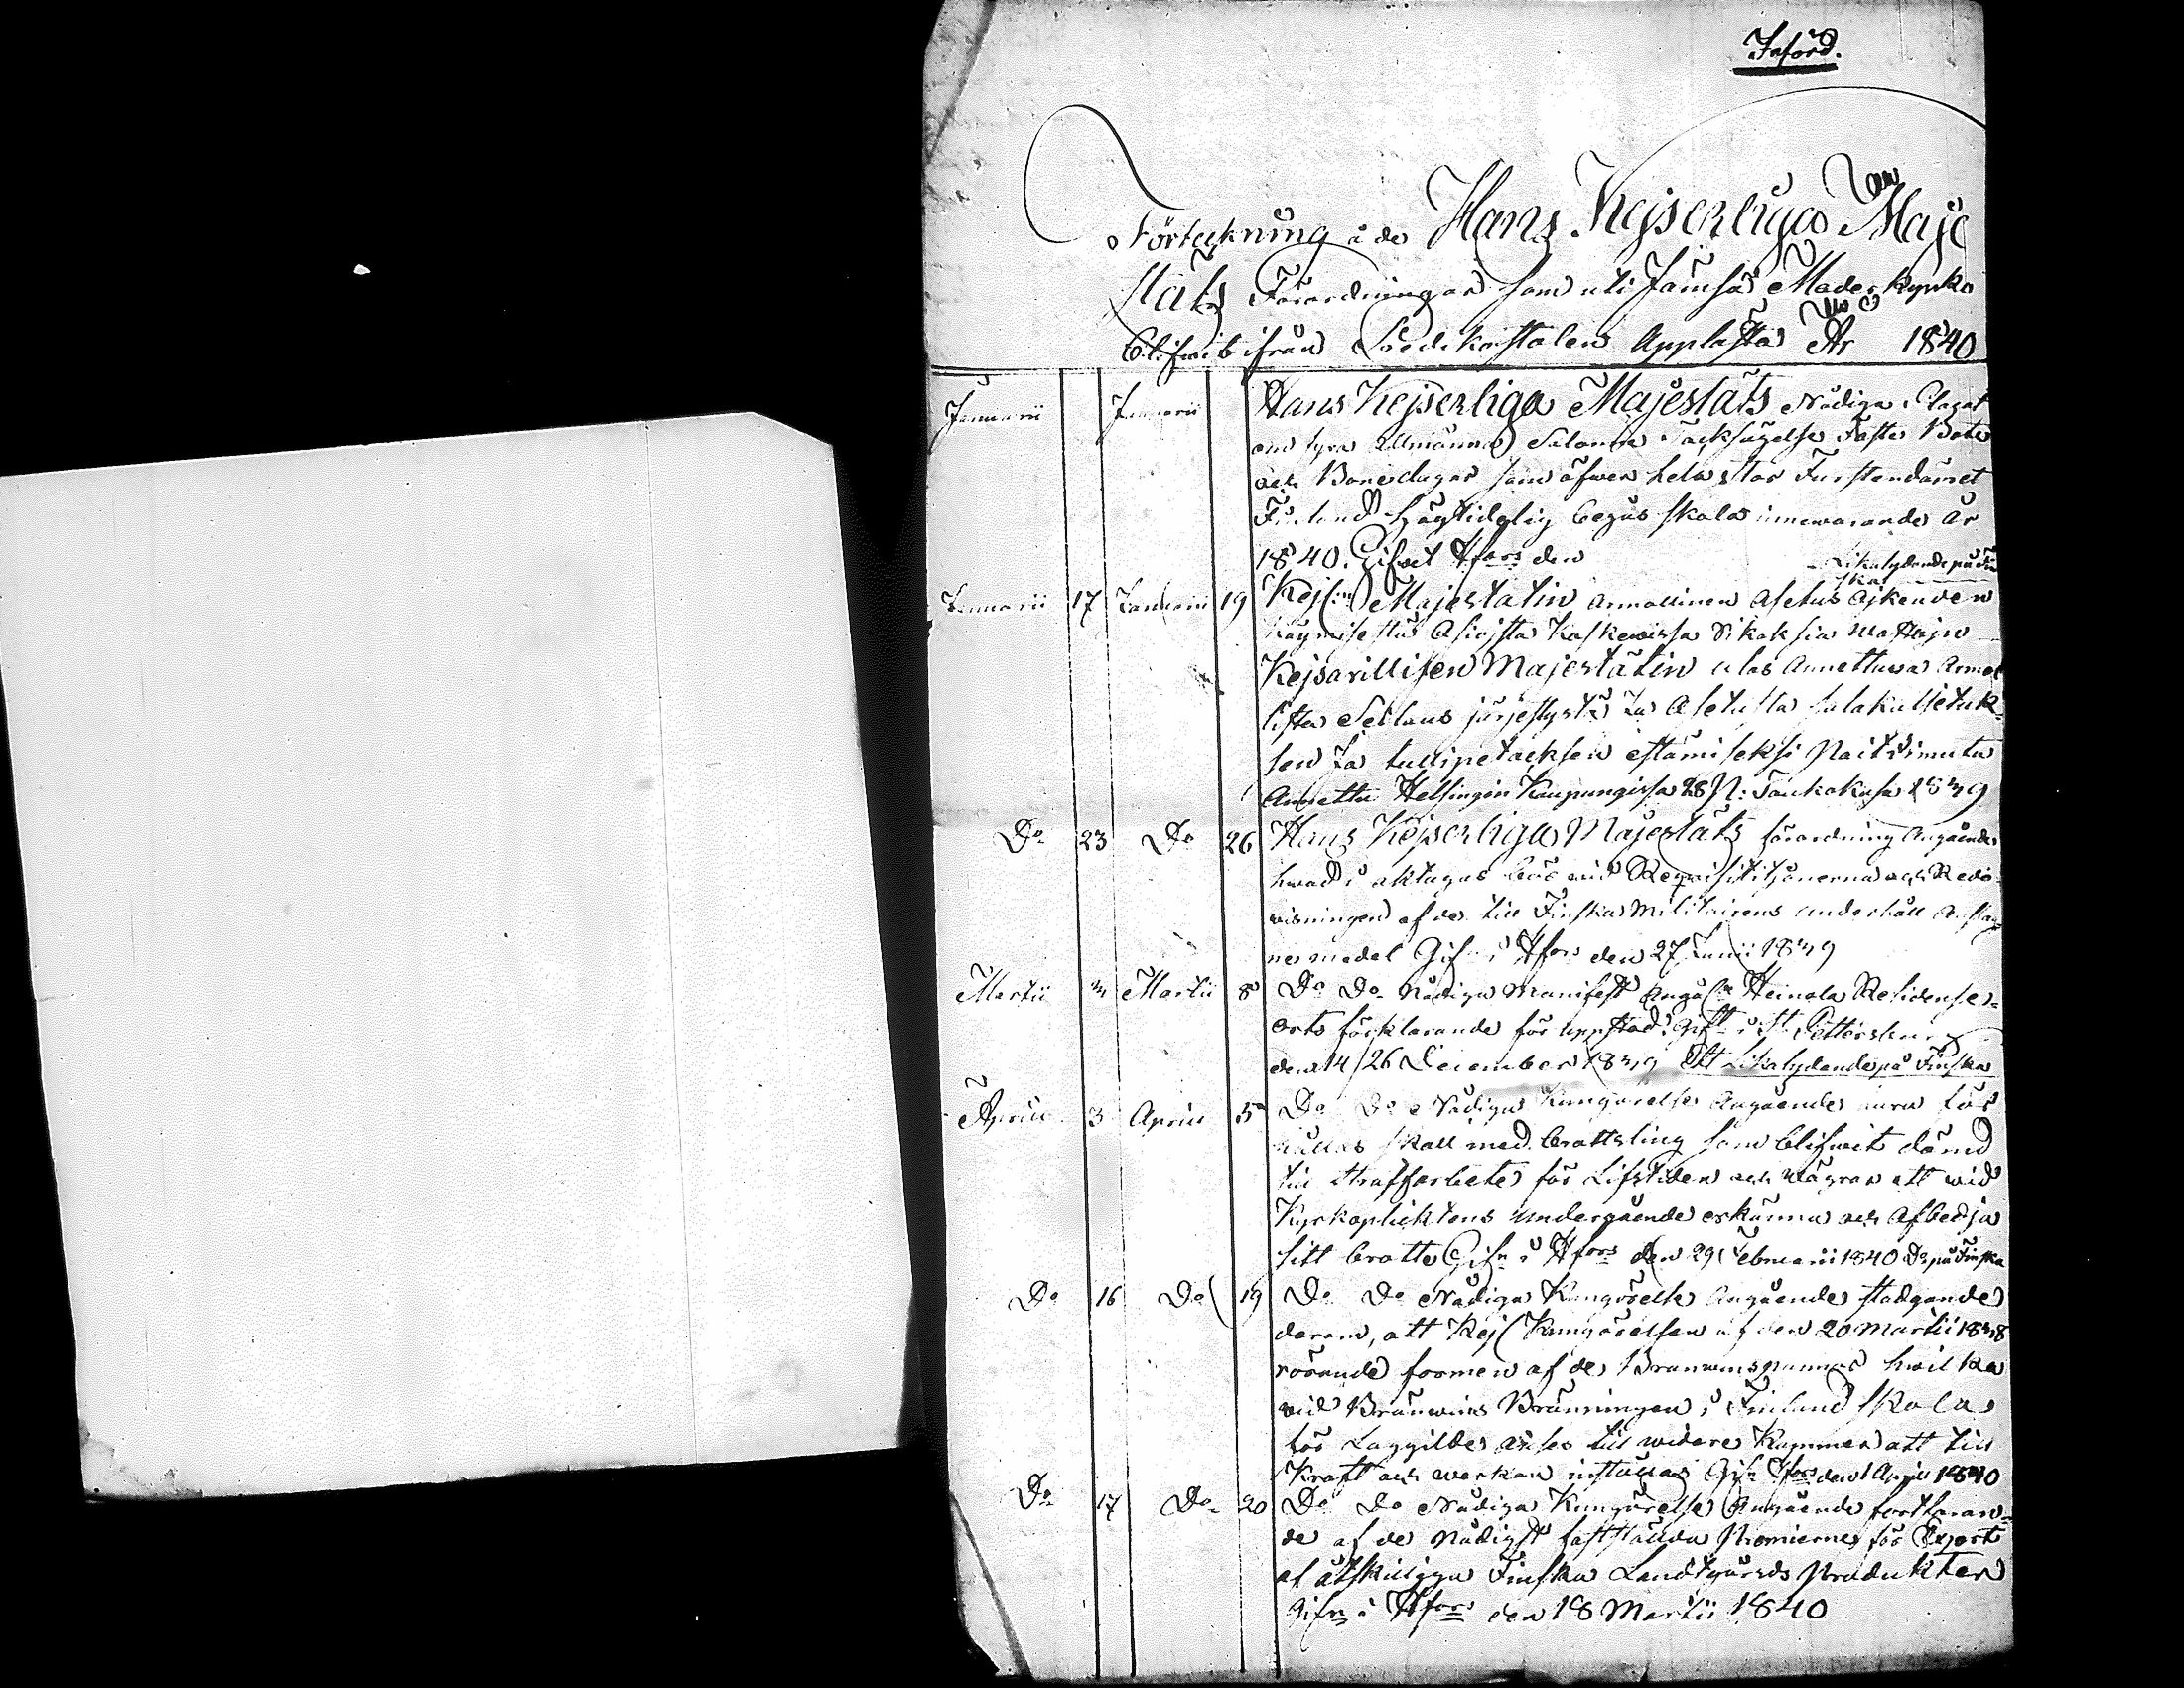 Införd.
Förteckning å de Hans Kejserliga Maje
stäts Förordningar som uti Jämsä Moderkyrka
blifwit ifrån Predikostolen Applästa År 1840
Januarii Januarii Hans Kejserliga Majestäts Nådiga Placat
om fyra Allmänna Solenna Tacksägelse Faste Bote
och Bönedagar som öfwer hela stor Furstendömet
Finland högtidelig begås skola innewarande år
1840. Gifwet Hfors den Likalydande på Fin
ska
Januarii 17 Januarii 19 Kejs. Majestätin Armollinen Asetus Ajkeuden
käymisestä Asiojsta Koskewissa
Kejsarillisen Majestätin ulos Annettuwa Armol
lista Seillans järjestystä ja Asetusta salakulietuk-
sen ja tullipetoksen estämiseksi
Annettu Helsingin Kaupungissa 28 P: Toukokusa 1839
Do 23 Do 26 Hans Kejserliga Majestäts förordning Angående
hwad i akttagas bör wid Reqvisitionerna och Redo-
wisningen af de till Finska Militairens underhåll Anslag
ne medel Gifn i Hfors den 27 Junii 1839
Martii 3 Martii 8 Do Do Nådiga Manifest Angå Heinola Residense-
orts förklarande för uppstad. Gift i St Pettersburg
den 14/26 December 1839 Ett Likalydande på Finska
Aprill 3 Aprill 5 Do Do Nådiga Kungörelse Angående huru för
hållas skall med brottsling som blifwit dömd
till straffarbete för Lifstiden och wägrar att wid
Kyrkopliktens undergående erkänna och Afbedja
sitt brott Gifn i Hfors den 29 Februarii 1840 Do på Finska
Do 16 Do 19 Do Do Nådiga Kungörelse Angående stadgande
derom, att Kejs Kungörelsen af den 20 Martii 1838
rörande formen af de Bränwinspannor hwilka
wid Bränwins Bränningen i Finland skola
för Laggilda anses till widare Kommer att till
Kraft och werkan inställas Gifn Hfors den 1 April 1840
Do 17 Do 20 Do Do Nådiga Kungörelse Angående fortfaran-
de af de Nådigst fastställda Premierne för Export
af åtskilliga Finska Landtgårds Produkter
Gifn i Hfors den 18 Martii 1840